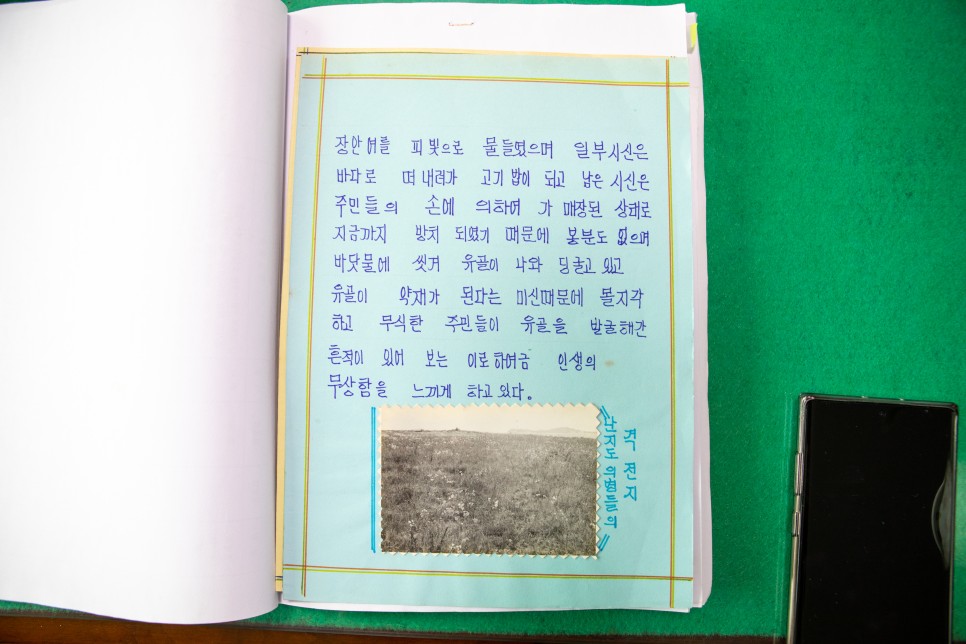 장안여를 피빛으로 물들였으며 일부시신은
바다로 떠내려가 고기밥이 되고 남은 시신은
주민들의 손에 의하여 가매장된 상태로
지금까지 방치 되였기 때문에 봉분도 없으며
바닷물에 씻겨 유골이 나와 딩굴고 있고
유골이 약재가 된다는 미신때문에 몰지각
하고 무식한 주민들이 유골을 발굴해간
흔적이 있어 보는 이로하여금 인생의
무상함을 느끼게 하고 있다.
난지도 의병들의
격전지